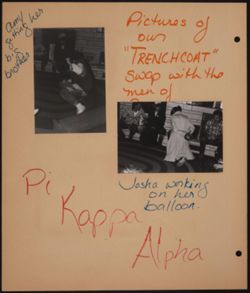 Amy
getting her
big
brother
Pictures of
our
"TRENCHCOAT"
Swap with the
men of
Josha working
on her
balloon.
Pi
Kappa
Alpha